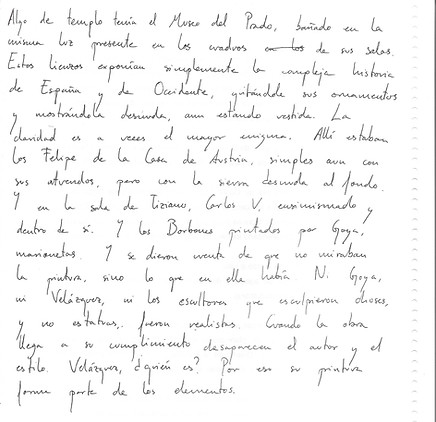 Algo de templo tenía el Museo del Prado, bañado en la
misma luz presente en los cuadros en los de sus salas.
Estos lienzos exponían simplemente la compleja historia
de España y de Occidente, quitándole sus ornamentos
y mostrándola desnuda, aun estando vestida. La
claridad es a veces el mayor enigma. Allí estaban
los Felipe de la Casa de Austria, simples aun con
sus atuendos, pero con la sierra desnuda al fondo.
Y en la sala de Tiziano, Carlos V, ensimismado y
dentro de sí. Y los Borbones pintados por Goya,
marionetas. Y se dieron cuenta de que no miraban
la pintura, sino lo que en ella había. Ni Goya,
ni Velázquez, ni los escultores que esculpieron dioses,
y no estatuas, fueron realistas. Cuando la obra
llega a su cumplimiento desaparecen el autor y el
estilo. Velázquez, ¿quién es? Por eso su pintura
forma parte de los elementos.